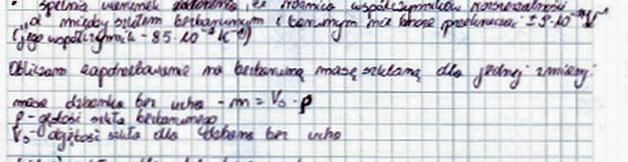 spełnia warunek, że różnica współczynników rozszerzalności
α między szkłem bezbarwnym i barwnym nie może przekraczać ± 2·10⁻⁷ K⁻¹
(jego współczynnik - 85·10⁻⁷ K⁻¹)
Obliczam zapotrzebowanie na bezbarwną masę szklaną dla jednej zmiany:
masa dzbanka bez ucha - m = V₀ · ρ
ρ - gęstość szkła bezbarwnego
V₀ - objętość szkła dla dzbana bez ucha